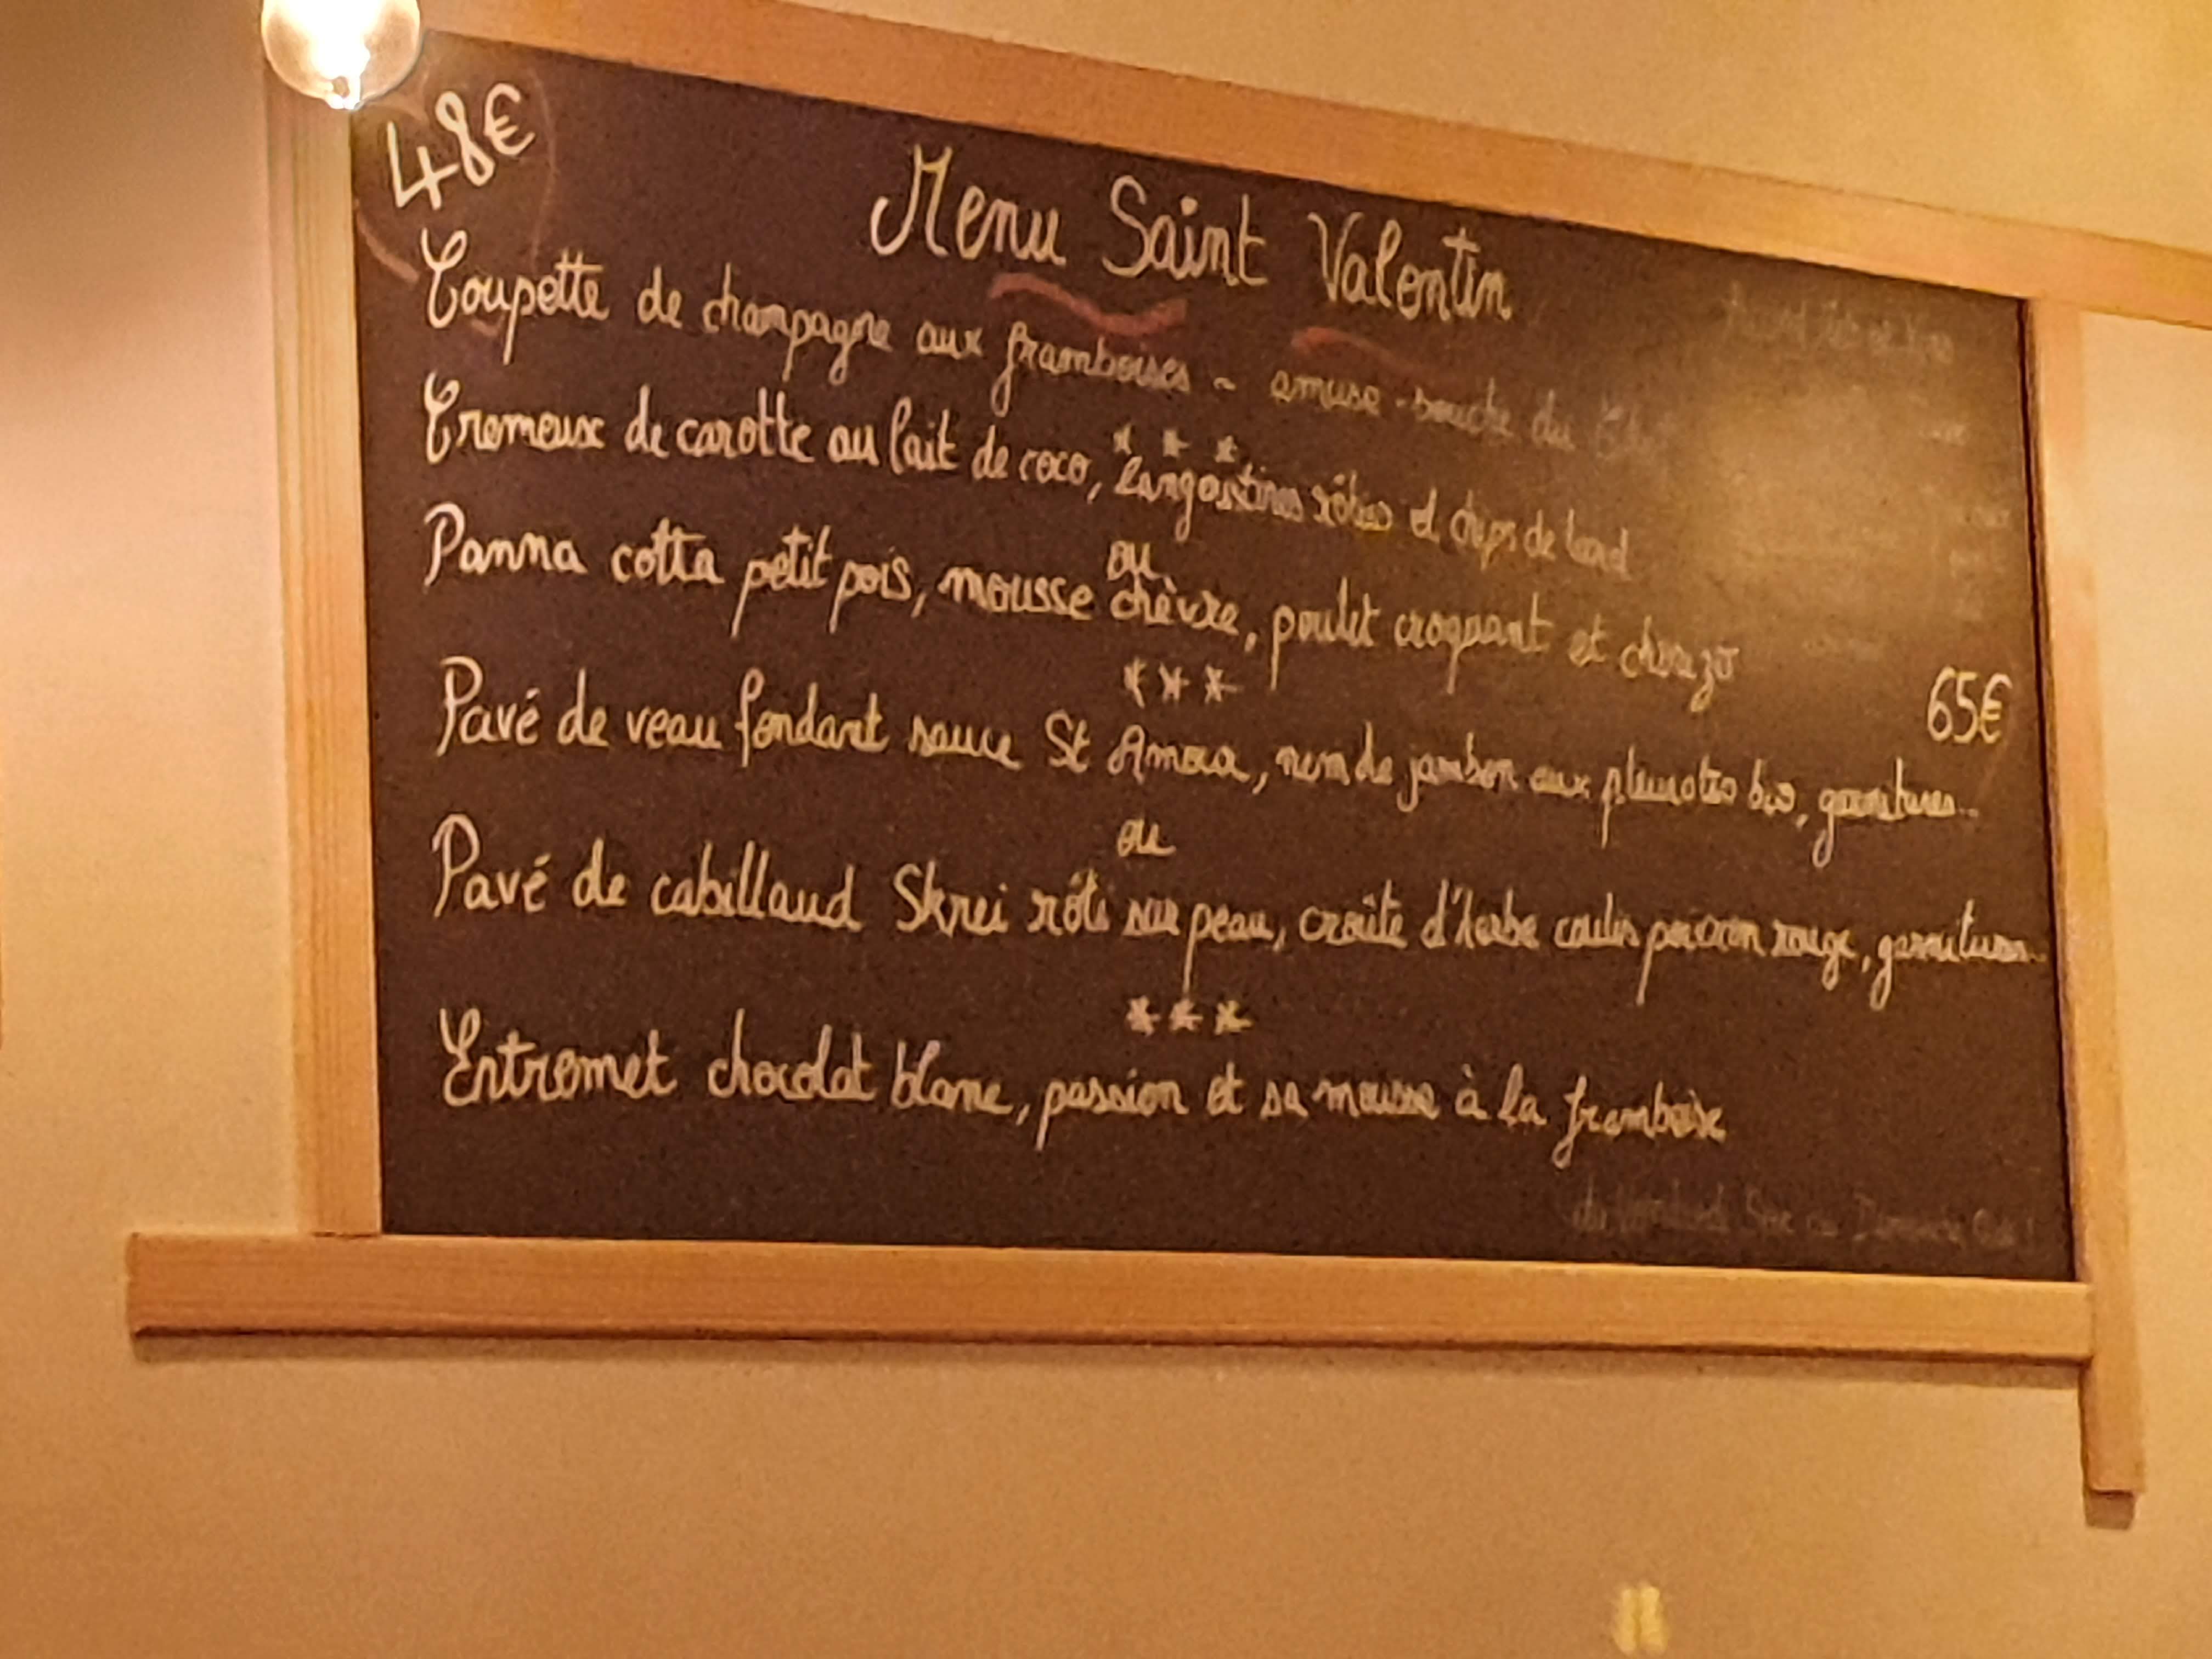 48€
Menu Saint Valentin
Coupette de champagne aux framboises - amuse-bouche du Chef
* * *
Cremeux de carotte au lait de coco, langoustines rôties et chips de lard
ou
Panna cotta petit pois, mousse chèvre, poulet croquant et chorizo
* * *
65€
Pavé de veau fondant sauce St Amour, nem de jambon aux pleurotes bio, garnitures...
ou
Pavé de cabillaud Skrei rôti sur peau, croûte d'herbe coulis poivron rouge, garnitures..
* * *
Entremet chocolat blanc, passion et sa mousse à la framboise